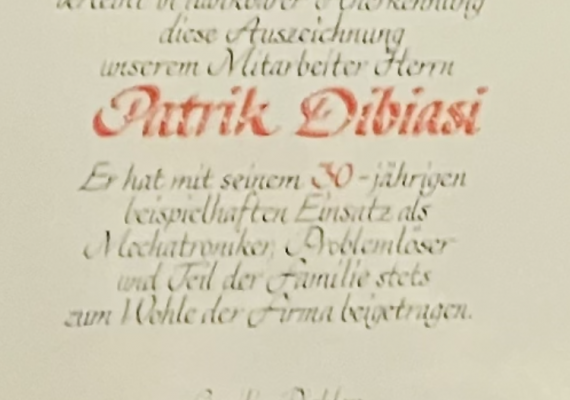 in dankbarer Anerkennung
diese Auszeichnung
unserem Mitarbeiter Herrn
Patrik Dibiasi
Er hat mit seinem 30-jährigen
beispielhaften Einsatz als
Mechatroniker, Problemlöser
und Teil der Familie stets
zum Wohle der Firma beigetragen.